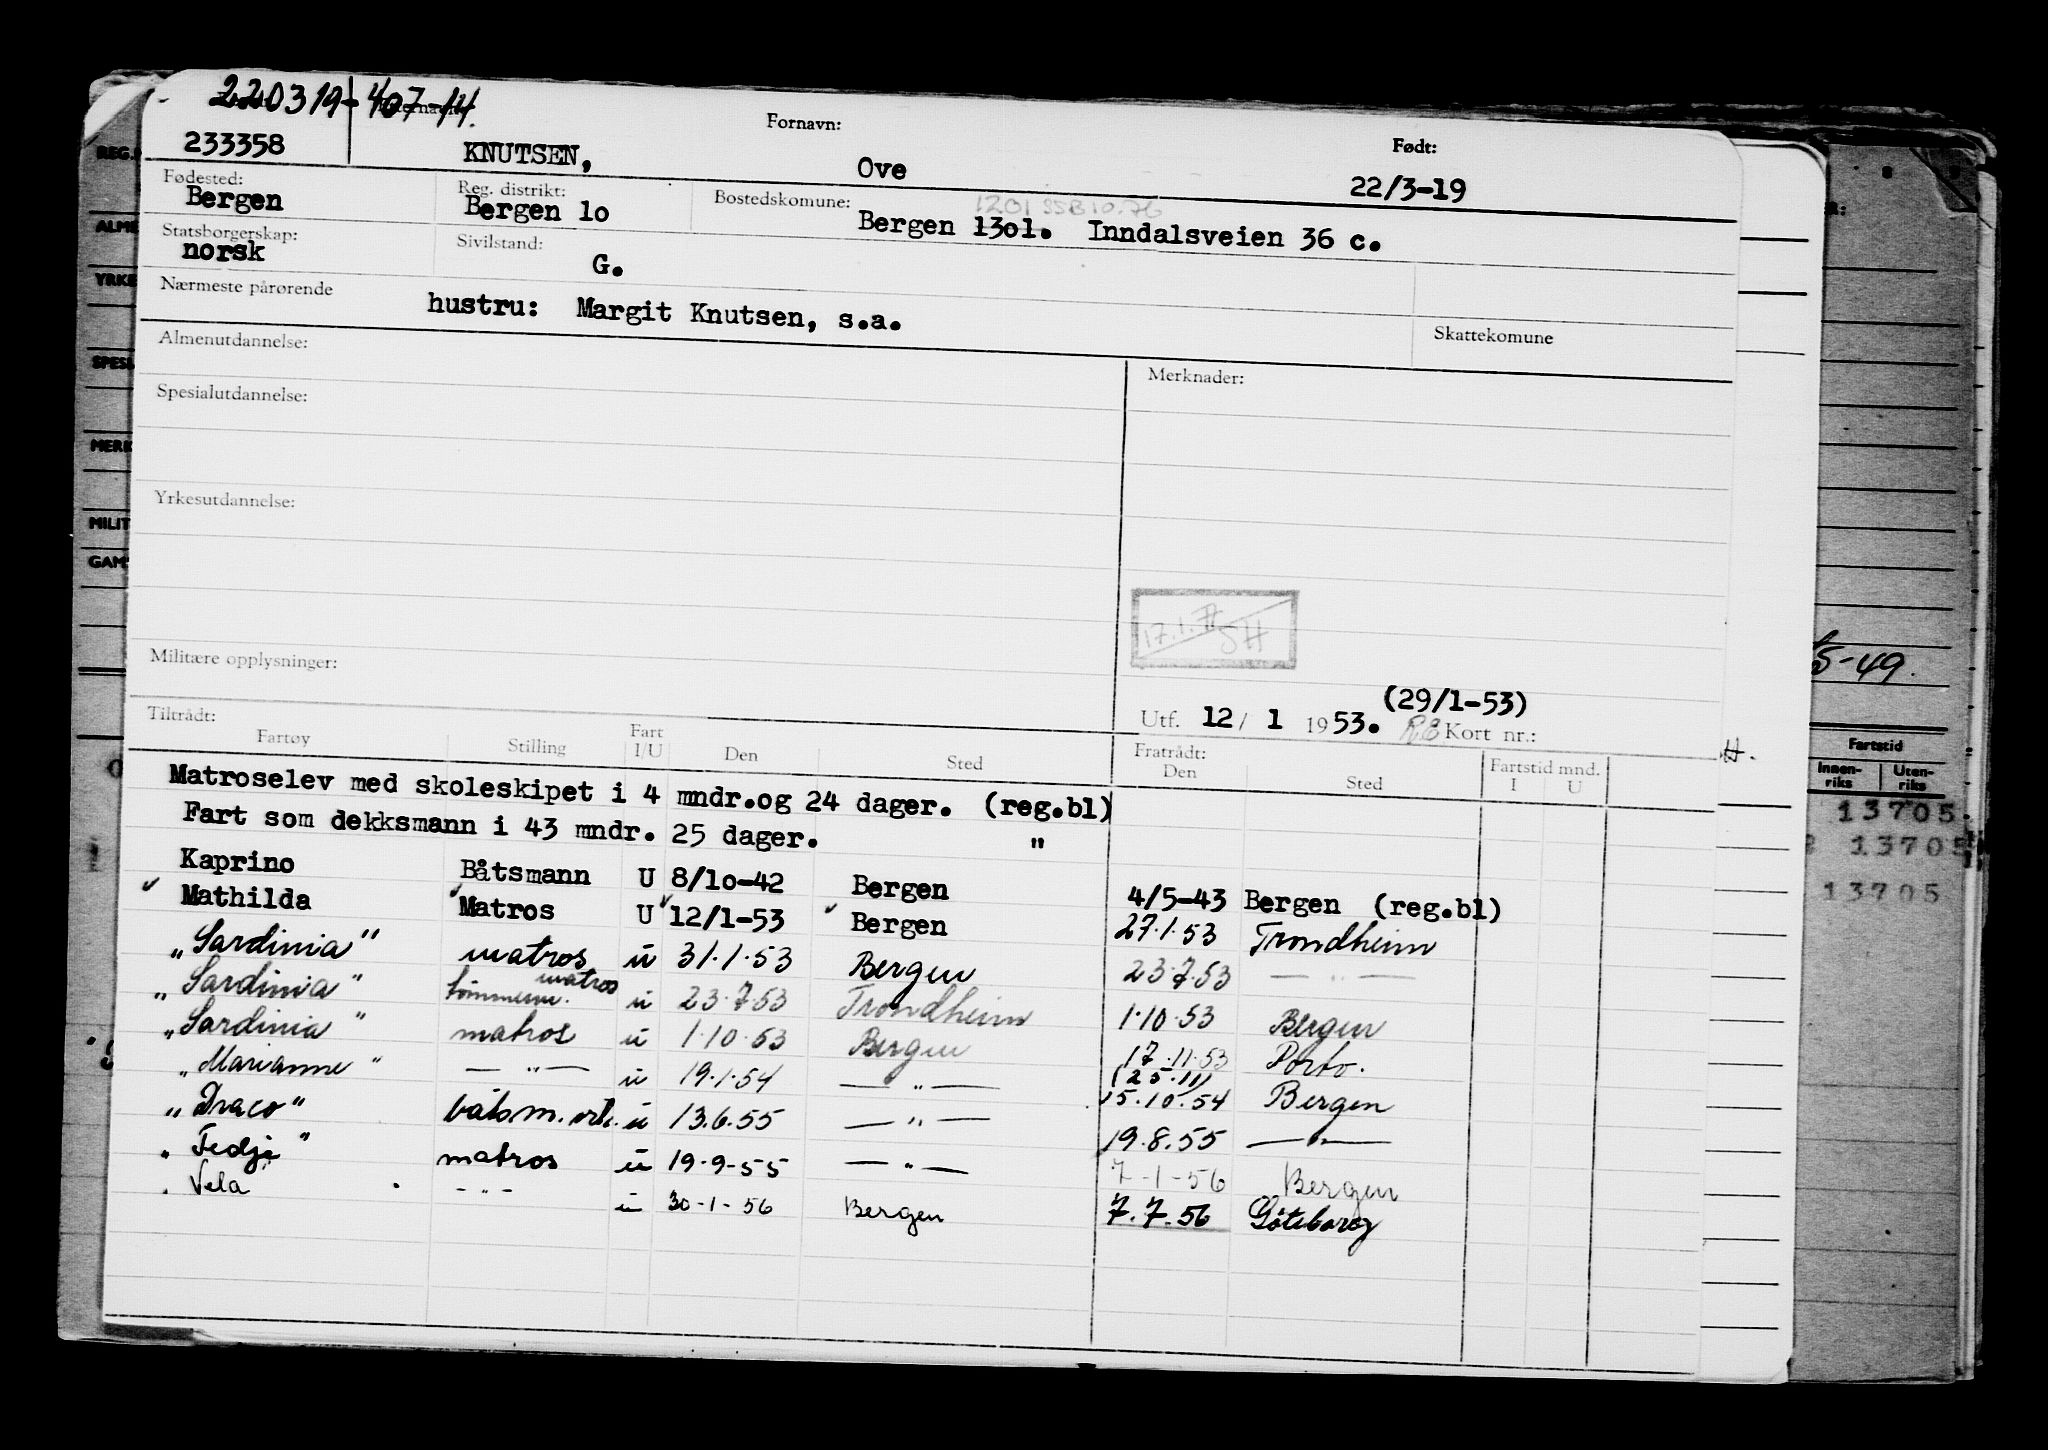 220319-407-14.
233358 KNUTSEN, Fornavn: Ove Født: 22/3-19
Fødested: Bergen Reg. distrikt: Bergen lo Bostedskomune: Bergen 13ol. Inndalsveien 36 c.
1201 SSB 10.76
Statsborgerskap: norsk Sivilstand: G.
Nærmeste pårørende hustru: Margit Knutsen, s.a. Skattekomune
Almenutdannelse: Merknader:
Spesialutdannelse:
Yrkesutdannelse:
Militære opplysninger:
(29/1-53)
Utf. 12/ 1 1953. Kort nr.:
Tiltrådt: Fratrådt:
Fartøy Stilling Fart I/U Den Sted Den Sted Fartstid mnd. I U
Matroselev med skoleskipet i 4 mndr.og 24 dager. (reg.bl)
Fart som dekksmann i 43 mndr. 25 dager. "
Kaprino Båtsmann U 8/lo-42 Bergen 4/5-43 Bergen (reg.bl)
Mathilda Matros U 12/1-53 Bergen 27.1.53 Trondheim
"Sardinia" matros u 31.1.53 Bergen 23.7.53 — " —
"Sardinia" tømmerm. matros u 23.7.53 Trondheim 1.10.53 Bergen
"Sardinia" matros u 1.10.53 Bergen 17.11.53 Porto.
(25.11)
"Marianne" — " — u 19.1.54 — " — 15.10.54 Bergen
"Draco" båtsm. u 13.6.55 — " — 19.8.55 — " —
"Fedje" matros u 19-9-55 — " — 7-1-56 Bergen
Vela - " - u 30-1-56 Bergen 7.7.56 Göteborg
REG.
ALME
YRKE
SPESI
MERK
MILIT
GAM
5-49.
Fartstid
Innen-riks Uten-riks
13705
13705
13705